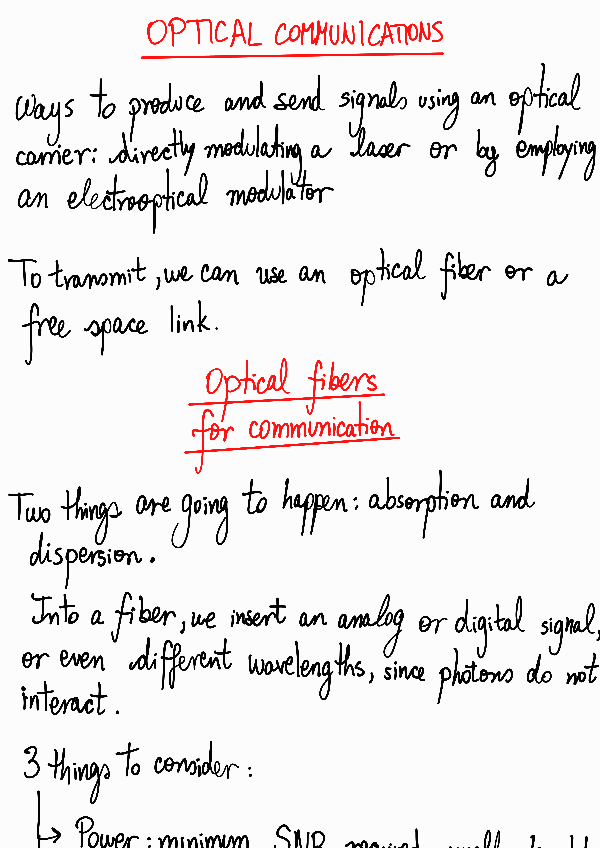 OPTICAL COMMUNICATIONS
Ways to produce and send signals using an optical
carrier: directly modulating a laser or by employing
an electrooptical modulator
To transmit, we can use an optical fiber or a
free space link.
Optical fibers
for communication
Two things are going to happen: absorption and
dispersion.
Into a fiber, we insert an analog or digital signal,
or even different wavelengths, since photons do not
interact.
3 things to consider:
→ Power: minimum SNR